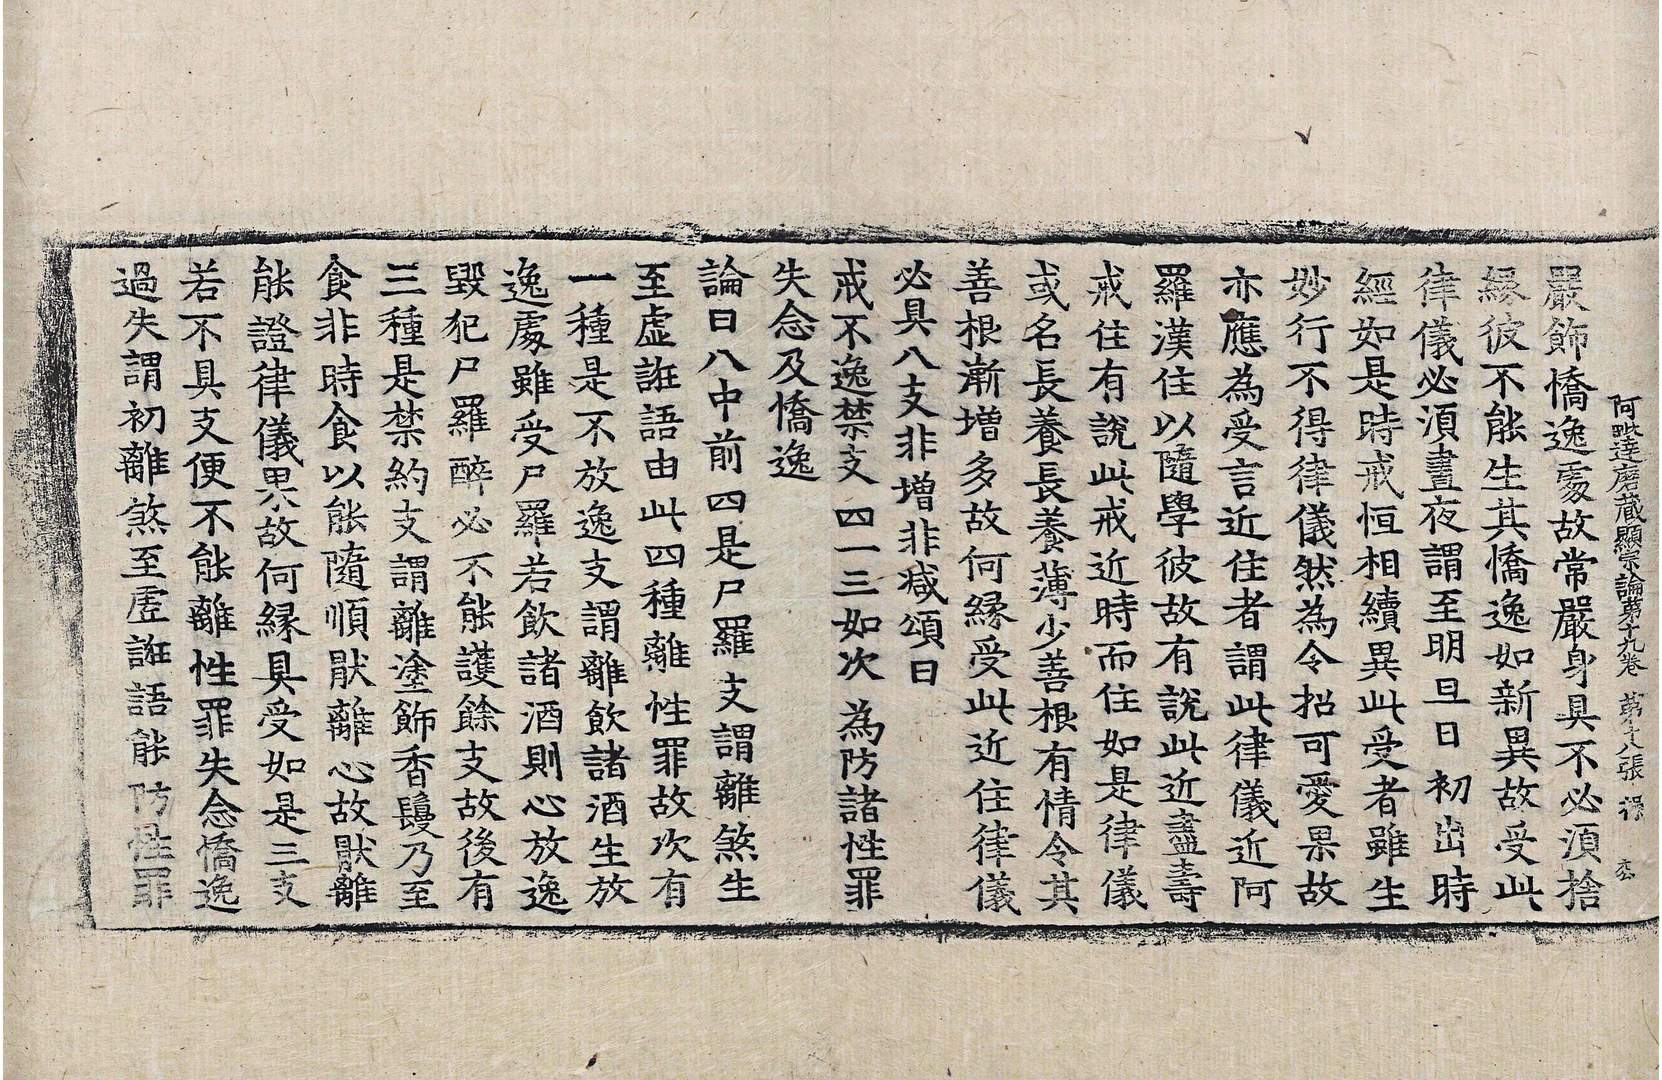 阿毗達磨藏顯宗論第十九卷 第十八張
嚴飾憍逸處故常嚴身具不必湏捨
緣彼不能生其憍逸如新異故受此
律儀必湏晝夜謂至明旦日初出時
經如是時戒恒相續異此受者雖生
妙行不得律儀然為令招可愛果故
亦應為受言近住者謂此律儀近阿
羅漢住以隨學彼故有說此近盡壽
戒住有說此戒近時而住如是律儀
或名長養長養薄少善根有情令其
善根漸增多故何緣受此近住律儀
必具八支非增非減頌曰
戒不逸禁支 四一三如次 為防諸性罪
失念及憍逸
論曰八中前四是尸羅支謂離煞生
至虛誑語由此四種離性罪故次有
一種是不放逸支謂離飲諸酒生放
逸處雖受尸羅若飲諸酒則心放逸
毀犯尸羅醉必不能護餘支故後有
三種是禁約支謂離塗飾香鬘乃至
食非時食以能隨順猒離心故猒離
能證律儀果故何緣具受如是三支
若不具支便不能離性罪失念憍逸
過失謂初離煞至虛誑語能防性罪